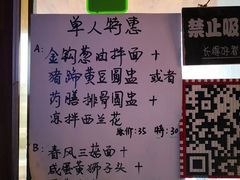 单人特惠
A: 金钩葱油拌面 +
猪蹄黄豆圆盅 或者
药膳排骨圆盅 +
凉拌西兰花
原价:35 特:30
B: 春风三菇面 +
咸蛋黄狮子头 +
禁止吸